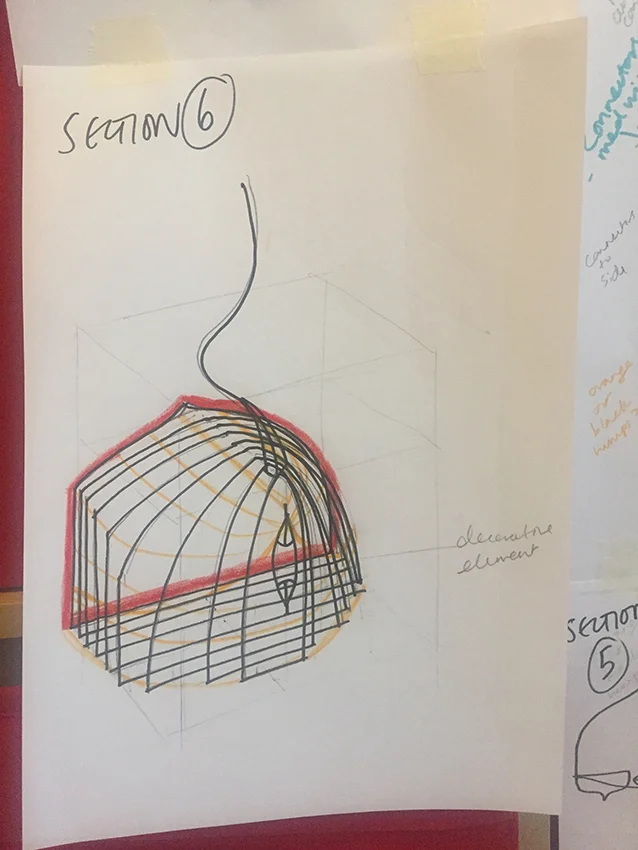 SECTION 6
decorative
element
connectors
med
connectors
to
side
orange
or
black
SECTION
5